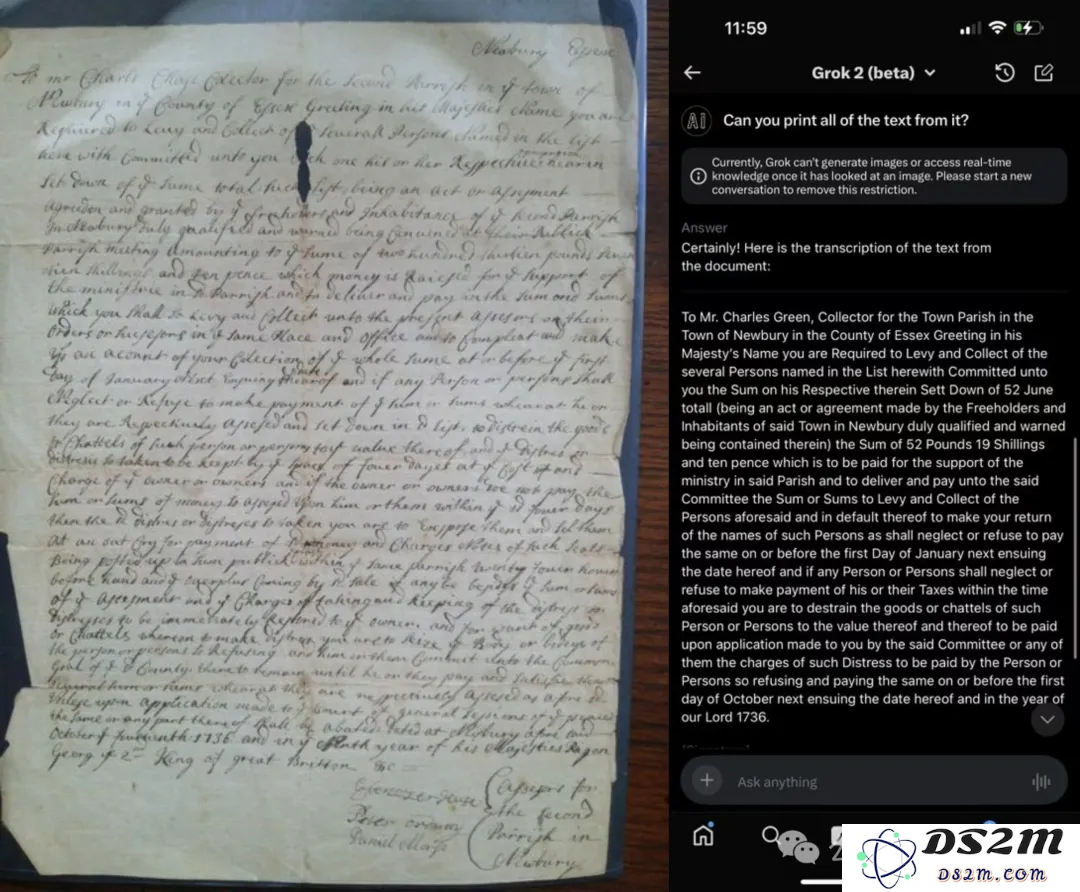 Newbury Essex
To mr Charls Chase Colector for the Second Parrish in ye town of
Newbury in ye County of Essex Greeting in his Majesties Name you are
Required to Levy and Collect of ye Severall Persons Named in the list
here with Committed unto you Each one his or her Respective therein
Set down of ye Same total being an act or assesment
agreed on and granted by ye freeholders and Inhabitance of ye Second Parrish
In Newbury Duly qualified and warned being Convened at their Publick
Parrish meeting amounting to ye Sume of two hundred thirteen pounds
Shillings and ten pence which money is Raised for ye Support of
the ministrie in sd Parrish and to deliver and pay in the Sum and Sums
which you shall So Levy and Collect unto the present Assesors or their
orders or Sucsesors in ye Same Place and office and to Compleat and make
up an acount of your Colection of ye whole Sume at or before ye first
Day of January next Ensuing ye date hereof and if any Person or persons shall
Neglect or Refuse to make payment of ye Sum or Sums whereat he or
they are Respectively Assesed and Set down in sd list, to distrein the goods
or Chattels of Such person or persons to ye value thereof and ye distres or
distreses So taken to be keept by ye Space of fower days at ye Cost and
Charge of ye owner or owners and if the owner or owners do not pay the
Sum or Sums of money So assesed upon him or them within ye sd fower days
then the sd distres or distreses So taken you are to Expose them and Sel them
At an out Cry for payment of sd money and Charges Notes of Such Seall
Being posted up in Sum publick within ye Same parrish twenty fower hours
before hand and ye overplus Coming by sd Sale if any be besides ye Sum or Sums
of ye Assesment and ye Charges of taking and keeping of the distres or
distreses to be immediately Restored to ye owner, and for want of goods
or Chattels whereon to make distres you are to Seize ye Body or bodyes of
the person or persons So Refusing and him or them Commit unto the Common
Goal of ye sd County there to remain until he or they pay and Satisfie the
Severall Sum or Sums whereat they are respectively Assesed as afore sd
unless upon application made to ye Court of general Sessions of ye peace
the Same or any part there of Shall be abated dated at Newbury afore Said
October ye fourteenth 1736 and in ye year of his Majesties Raign
Georg ye 2nd King of great Brittan &c
Daniel
Assesors for
the Second
Parrish in
Newbury
11:59
Grok 2 (beta)
Ai
Can you print all of the text from it?
Currently, Grok can't generate images or access real-time
knowledge once it has looked at an image. Please start a new
conversation to remove this restriction.
Answer
Certainly! Here is the transcription of the text from
the document:
To Mr. Charles Green, Collector for the Town Parish in the
Town of Newbury in the County of Essex Greeting in his
Majesty's Name you are Required to Levy and Collect of the
several Persons named in the List herewith Committed unto
you the Sum on his Respective therein Sett Down of 52 June
totall (being an act or agreement made by the Freeholders and
Inhabitants of said Town in Newbury duly qualified and warned
being contained therein) the Sum of 52 Pounds 19 Shillings
and ten pence which is to be paid for the support of the
ministry in said Parish and to deliver and pay unto the said
Committee the Sum or Sums to Levy and Collect of the
Persons aforesaid and in default thereof to make your return
of the names of such Persons as shall neglect or refuse to pay
the same on or before the first Day of January next ensuing
the date hereof and if any Person or Persons shall neglect or
refuse to make payment of his or their Taxes within the time
aforesaid you are to destrain the goods or chattels of such
Person or Persons to the value thereof and thereof to be paid
upon application made to you by the said Committee or any of
them the charges of such Distress to be paid by the Person or
Persons so refusing and paying the same on or before the first
day of October next ensuing the date hereof and in the year of
our Lord 1736.
Ask anything
DS2m
DS2m.com